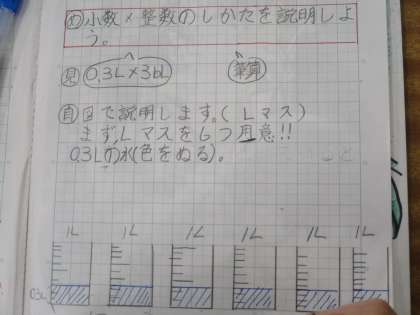 め 小数×整数のしかたを説明しよ
う。
見 0.3L×36L 筆算
自 図で説明します。(Lマス)
まず、Lマスを6つ用意!!
0.3Lの水(色をぬる)。
1L 1L 1L 1L 1L 1L
0.3L